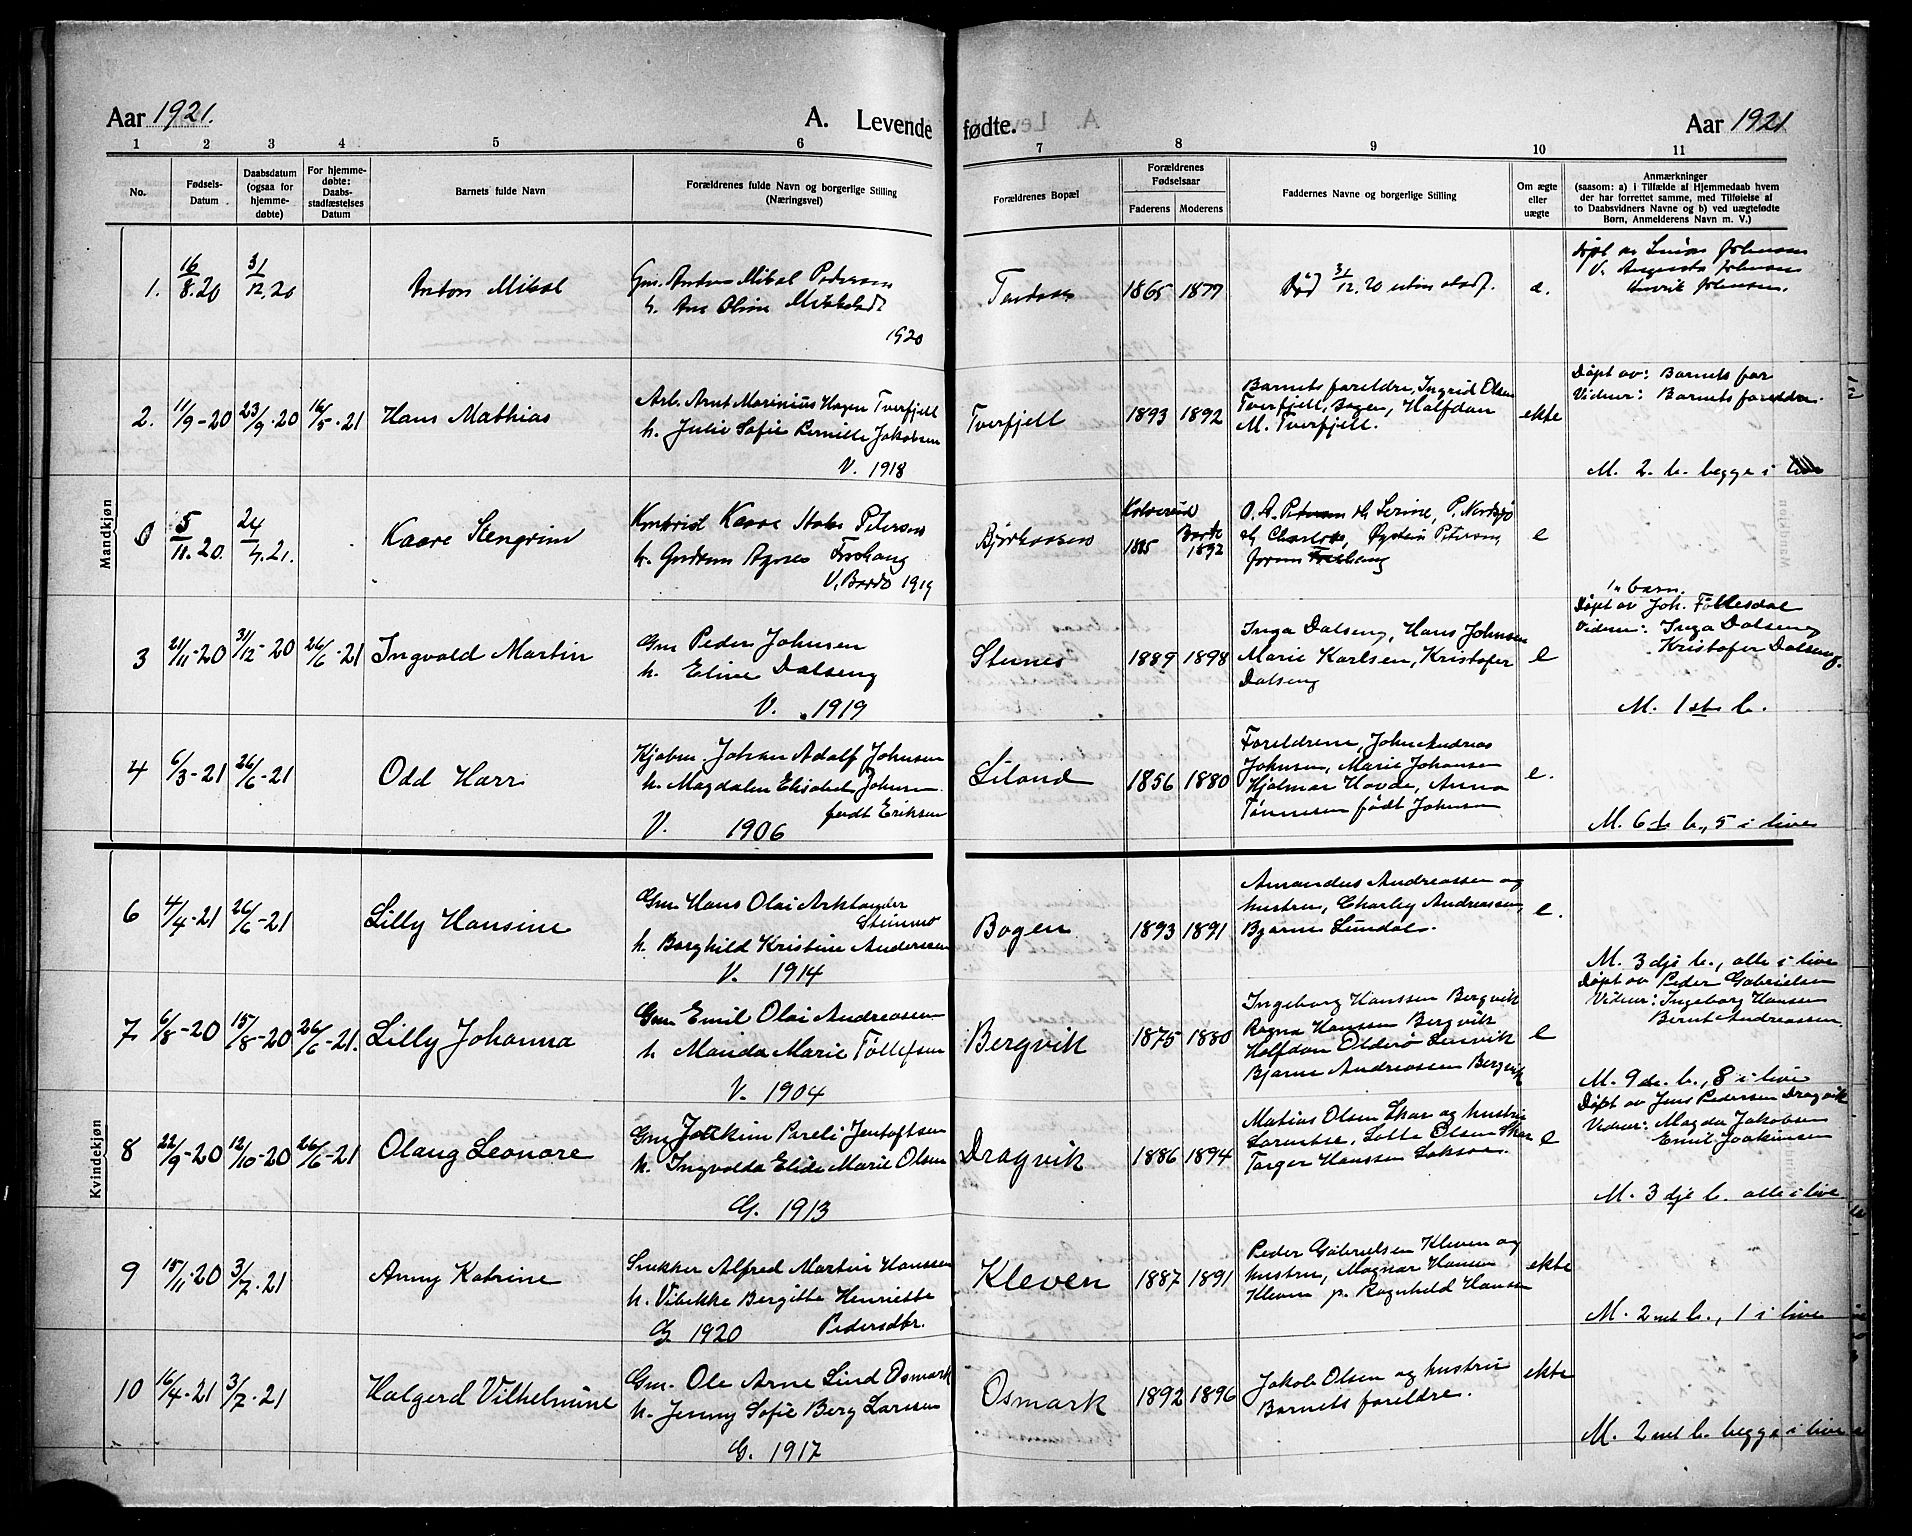 Aar 1921.
A. Levende
1 2 3 4 5 6
No.
Fødsels-
Datum
Daabsdatum
(ogsaa for
hjemme-
døbte)
For hjemme-
døbte:
Daabs-
stadfæstelses
Datum
Barnets fulde Navn
Forældrenes fulde Navn og borgerlige Stilling
(Næringsvei)
Mandkjøn
1. 16/8.20 31/12.20 Anton Mikal
Gm. Anton Mikal Pedersen
h. Ane Oline
1920
2. 11/9-20 23/9.20 16/5.21 Hans Mathias
Arb. Arnt Marinius Hagen Tverfjell
h. Julie Sofie Pernille Jakobsen
V. 1918
0 5/11.20 24/4.21. Kaare Stengrim
Kaare Petersen
h. Agnes
V. 1919
3 21/11-20 31/12-20 26/6-21 Ingvald Martin
Gm Peder Johnsen
h. Eline Dalseng
V. 1919
4 6/3-21 26/6-21 Odd Harr
Kjøbm. Johan Adolf Johnsen
h. Magdalen Elisabet Johnsen
født Eriksen
V. 1906
Kvindekjøn
6 4/4-21 26/6-21 Lilly Hansine
Gm Hans Olai
h. Borghild Kristine Andersen
V. 1914
7 6/8-20 15/8-20 26/6-21. Lilly Johanna
Gm Emil Olai Andreassen
h. Manda Marie Tollefsen
V. 1904
8 22/9-20 12/10-20 26/6-21 Olaug Leonore
Gm Joakim Pareli Jentoftsen
h. Ingvalda Elide Marie Olsen
G. 1913
9 15/11.20 3/7.21 Anny Katrine
Snekker Alfred Martin Hanssen
h. Vibekke Bergitte Henriette
G 1920 Pedersdtr.
10 16/4-21 3/7.21 Halgerd Vilhelmine
Gm. Ole Arne Lind Osmark
h. Jenny Sofie Berg Larsen
G. 1917
fødte.
Aar 1921
7 8 9 10 11
Forældrenes Bopæl
Forældrenes
Fødselsaar
Faderens Moderens
Faddernes Navne og borgerlige Stilling
Om ægte
eller
uægte
Anmærkninger
(saasom: a) i Tilfælde af Hjemmedaab hvem
der har forrettet samme, med Tilføielse af
to Daabsvidners Navne og b) ved uægtefødte
Børn, Anmelderens Navn m. V.)
1865 1877 Død 31/12.20 uten stadf. e.
Døpt av Johnsen
V. Augusta Johnsen
Henrik Johnsen.
Tverfjell 1893 1892
Barnets foreldre, Ingrid Olsen
Tverfjell, Bogen, Halfdan
M. Tverfjell.
ekte
Døpt av: Barnets far
Vidner: Barnets foreldre.
M. 2. b. begge i live
Kolvereid
1892
O. A. Petersen Serine, P.
Charlotte, Øystein Petersen,
e
1ste barn.
Sternes 1889 1898
Inga Dalseng, Hans Johnsen
Marie Karlsen, Kristofer
Dalseng
e
Døpt av Joh. Føllesdal
Vidner: Inga Dalseng
Kristofer Dalseng.
M. 1ste b.
Liland 1856 1880
Foreldrene, John Andreas
Johnsen, Marie Johansen
Hjalmar Hovde, Anna
Tønnesen født Johnsen
e.
M. 6te b., 5 i live
Bogen 1893 1891
Amandus Andreassen og
hustru, Charley Andreassen,
Bjarne Lundal.
e.
M. 3dje b., alle i live
Bergvik 1875 1880
Ingeborg Hanssen Bergvik
Ragna Hanssen Bergvik
Halfdan Olderø Lenvik
Bjarne Andreassen Bergvik
e
Døpt av Peder Gabrielsen
Vidner: Ingeborg Hanssen
Bernt Andreassen.
M. 9de b., 8 i live
Dragvik 1886 1894
Matias Olsen Skar og hustru
Lotte Olsen Skar
Torger Hanssen
e
Døpt av Jens Pedersen Dragvik
Vidner: Magda Jakobsen
Emil Joakimsen
M. 3dje b. alle i live
Kleven 1887 1891
Peder Gabrielsen Kleven og
hustru, Magnar Hansen
Kleven p. Ragnhild Hansen
ekte
M. 2net b., 1 i live
Osmark 1892 1896
Jakob Olsen og hustru
Barnets foreldre.
ekte
M. 2net b. begge i live